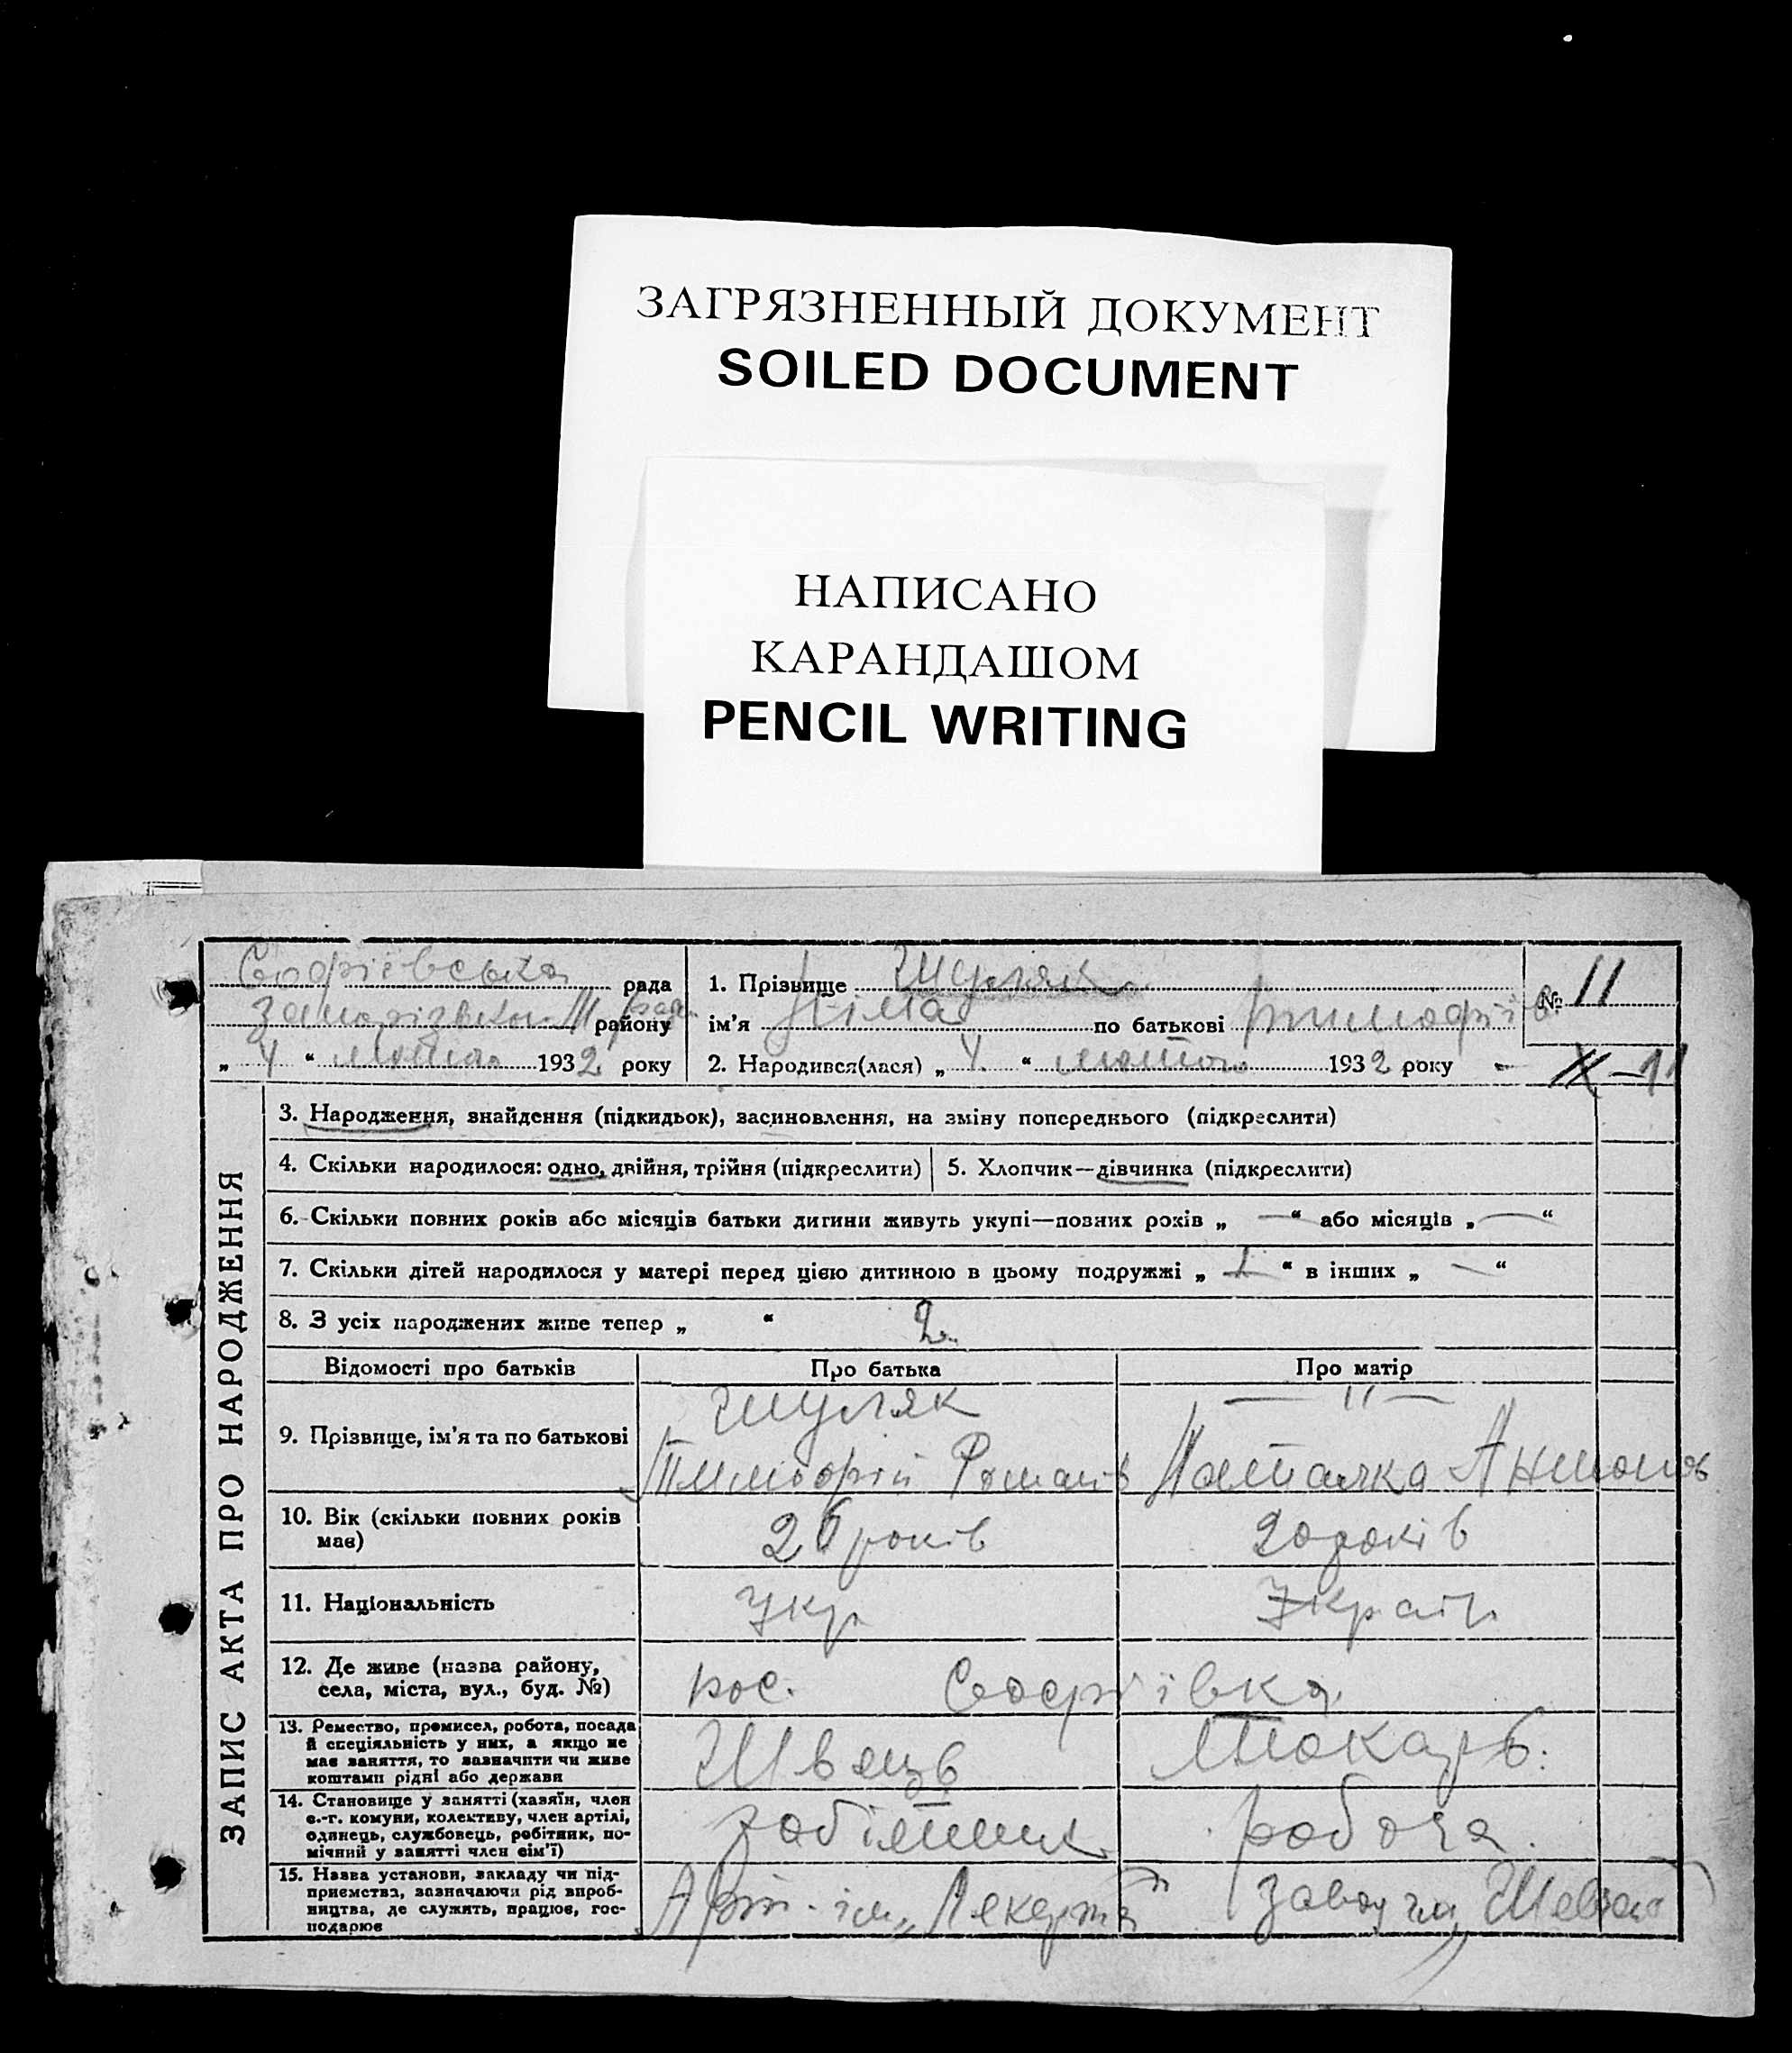 ЗАГРЯЗНЕННЫЙ ДОКУМЕНТ
SOILED DOCUMENT
НАПИСАНО
КАРАНДАШОМ
PENCIL WRITING
Софієвська рада
району
„ 4 “ лютого 1932 року
1. Прізвище Шуляк
ім’я Німа по батькові Тимофіїв
№ 11
2. Народився(лася) „ 4 “ лютого 1932 року
ЗАПИС АКТА ПРО НАРОДЖЕННЯ
3. Народження, знайдення (підкидьок), засиновлення, на зміну попереднього (підкреслити)
4. Скільки народилося: одно, двійня, трійня (підкреслити)
5. Хлопчик—дівчинка (підкреслити)
6. Скільки повних років або місяців батьки дитини живуть укупі—повних років „ — “ або місяців „ — “
7. Скільки дітей народилося у матері перед цією дитиною в цьому подружжі „ 1 “ в інших „ — “
8. З усіх народжених живе тепер „ “ 2
Відомості про батьків
Про батька
Про матір
9. Прізвище, ім’я та по батькові
Шуляк
Тимофій Романів
— 〃 —
Наталка Антонов
10. Вік (скільки повних років
має)
26 років
20 років
11. Національність
Укр
Україн
12. Де живе (назва району,
села, міста, вул., буд. №)
пос. Софіївка
13. Ремество, промисел, робота, посада
й спеціяльність у них, а якщо не
має заняття, то зазначити чи живе
коштами рідні або держави
Швець
Токарь.
14. Становище у занятті (хазяїн, член
с.-г. комуни, колективу, член артілі,
одинець, службовець, робітник, по-
мічний у занятті член сім’ї)
робітник
робоча.
15. Назва установи, закладу чи під-
приємства, зазначаючи рід вироб-
ництва, де служить, працює, гос-
подарює
Арт. ім. „Лекерта“
завод ім.